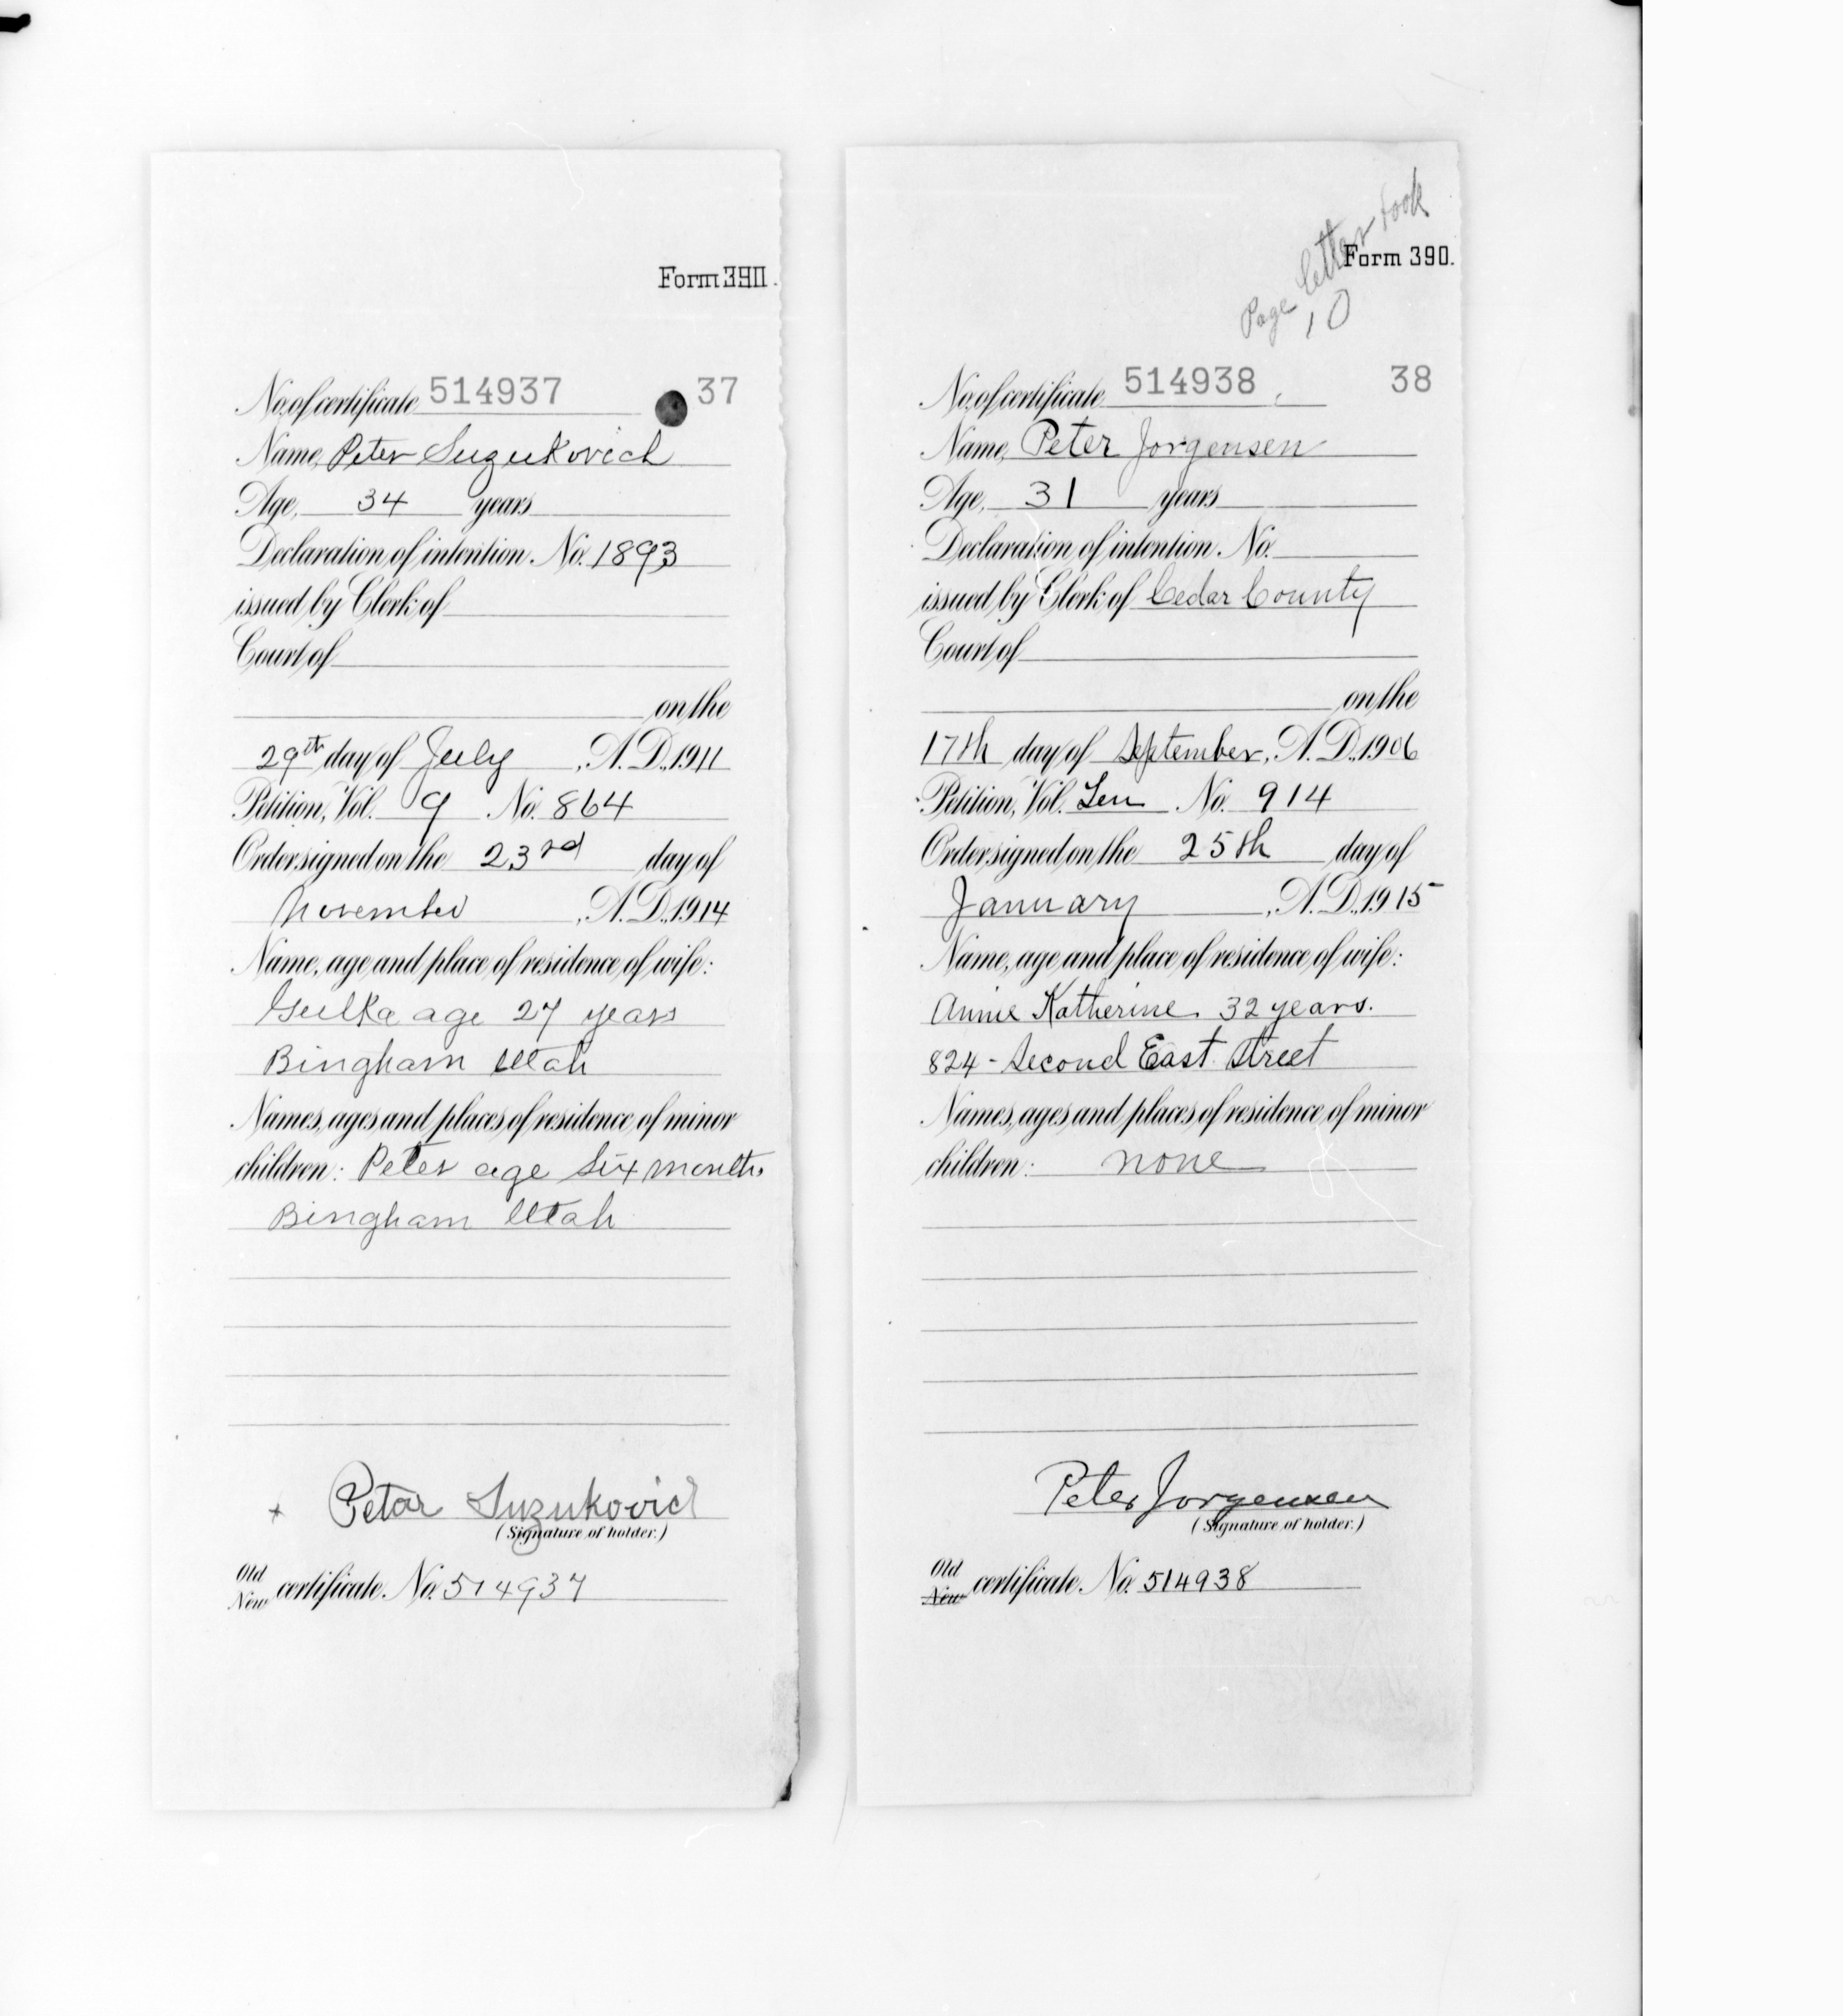 Form 390.
No. of certificate 514937 37
Name, Peter Suzukovich
Age, 34 years
Declaration of intention. No. 1893
issued by Clerk of
Court of
on the
29th day of July, A.D., 1911
Petition, Vol. 9 No. 864
Order signed on the 23rd day of
November, A.D., 1914
Name, age and place of residence of wife:
age 27 years
Bingham Utah
Names, ages and places of residence of minor
children: Peter age six months
Bingham Utah
x Petar Suzukovich
(Signature of holder.)
Old
New certificate. No. 514937
Page letter book
10
Form 390.
No. of certificate 514938 38
Name, Peter Jorgensen
Age, 31 years
Declaration of intention. No.
issued by Clerk of Cedar County
Court of
on the
17th day of September, A.D., 1906
Petition, Vol. Ten No. 914
Order signed on the 25th day of
January, A.D., 1915
Name, age and place of residence of wife:
Annie Katherine. 32 years.
824 - Second East Street
Names, ages and places of residence of minor
children: none
Peter Jorgensen
(Signature of holder.)
Old
New certificate. No. 514938